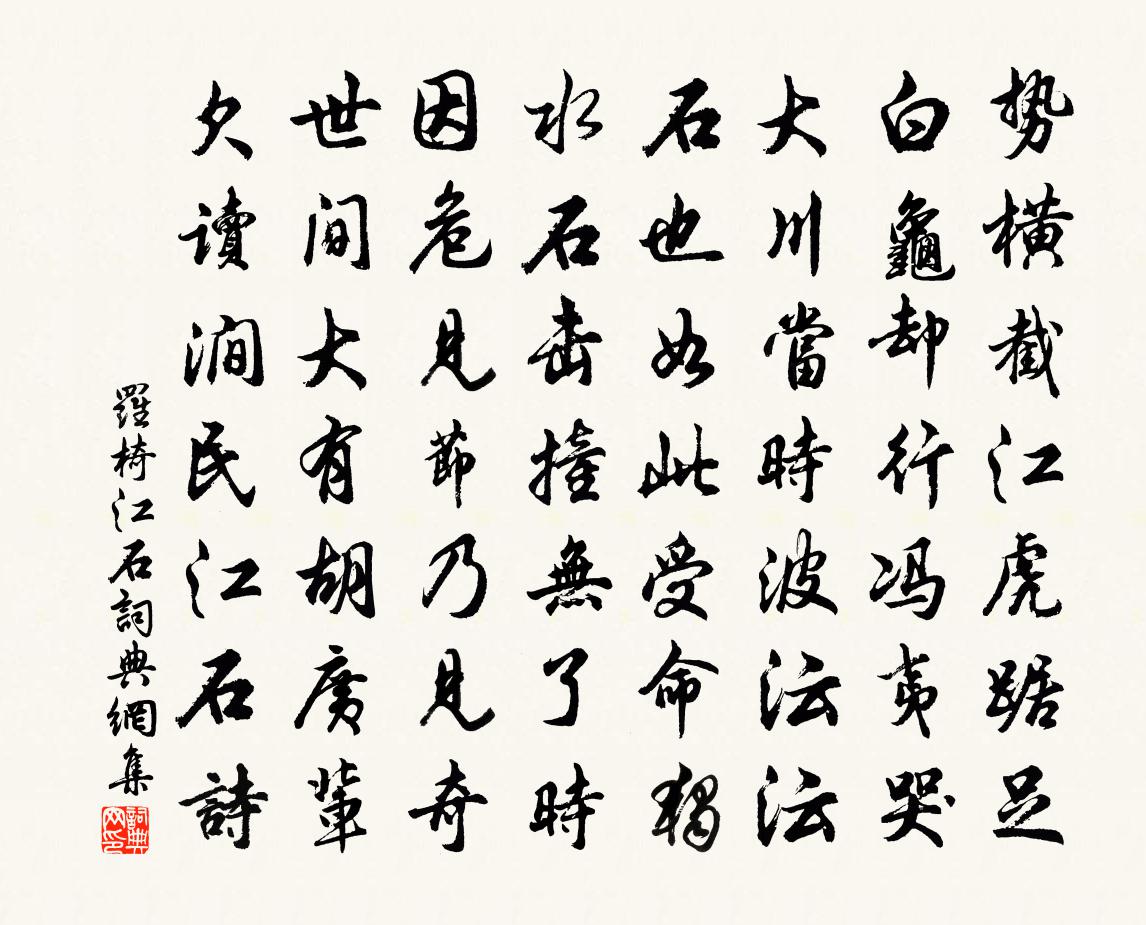 势橫截江虎踞足
白龜却行冯夷哭
大川當時波沄沄
石也如此受命獨
水石击撞無了時
因危見節乃見奇
世间大有胡廣輩
欠讀澗民江石詩
羅椅江石詞典網集
詞典网印